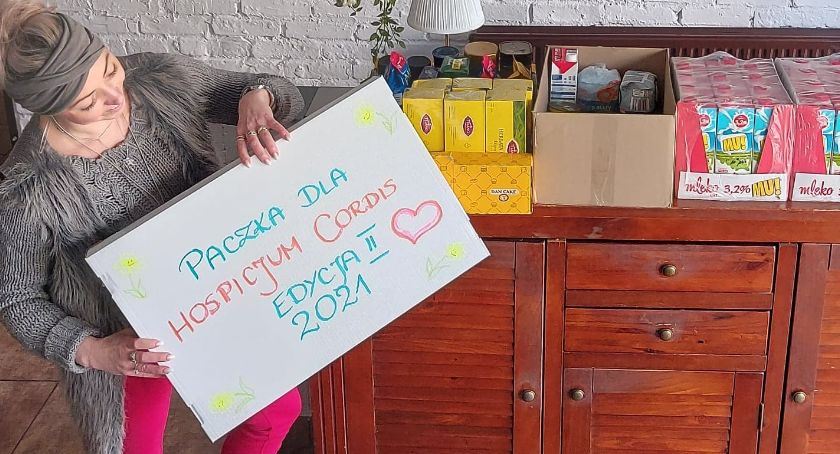 PACZKA DLA
HOSPICJUM CORDIS
EDYCJA II
2021
DAN CAKE
mleko 3,2% MU!
mleko
MU!